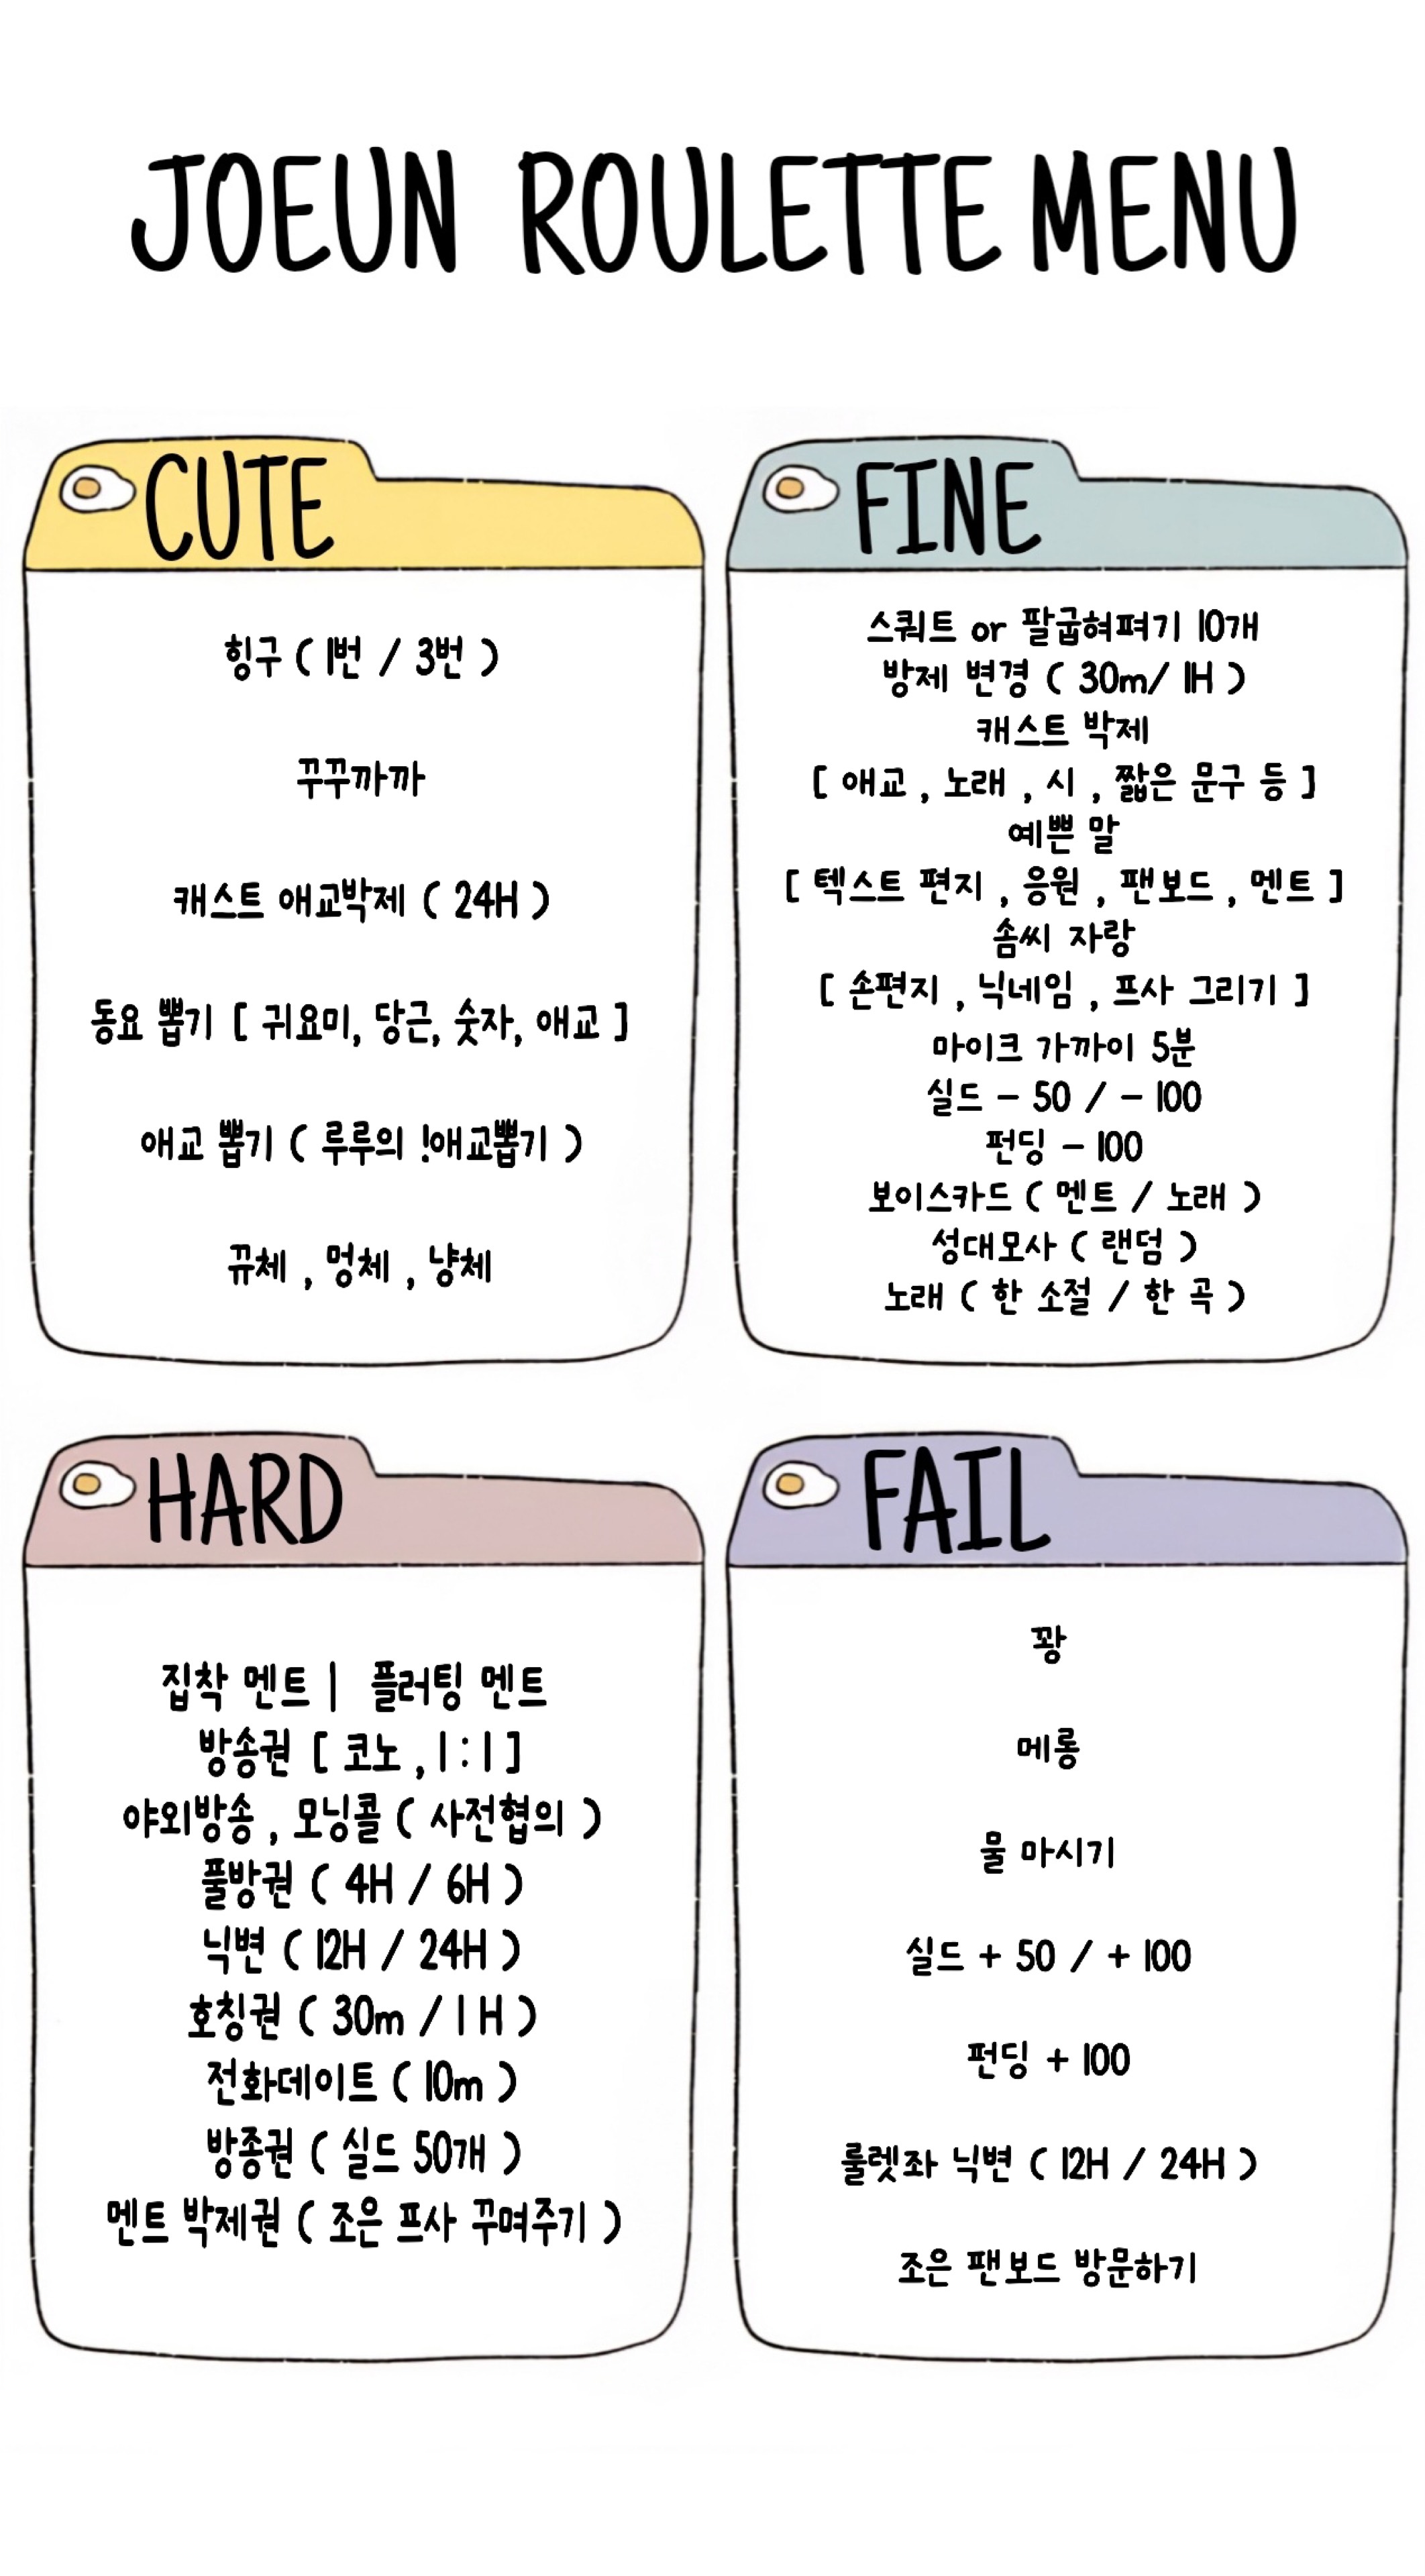 JOEUN ROULETTE MENU
CUTE
힝구 ( 1번 / 3번 )
꾸꾸까까
캐스트 애교박제 ( 24H )
동요 뽑기 [ 귀요미, 당근, 숫자, 애교 ]
애교 뽑기 ( 루루의 !애교뽑기 )
뀨체 , 멍체 , 냥체
FINE
스쿼트 or 팔굽혀펴기 10개
방제 변경 ( 30m/ 1H )
캐스트 박제
[ 애교 , 노래 , 시 , 짧은 문구 등 ]
예쁜 말
[ 텍스트 편지 , 응원 , 팬보드 , 멘트 ]
솜씨 자랑
[ 손편지 , 닉네임 , 프사 그리기 ]
마이크 가까이 5분
실드 - 50 / - 100
펀딩 - 100
보이스카드 ( 멘트 / 노래 )
성대모사 ( 랜덤 )
노래 ( 한 소절 / 한 곡 )
HARD
집착 멘트 | 플러팅 멘트
방송권 [ 코노 , 1 : 1 ]
야외방송 , 모닝콜 ( 사전협의 )
풀방권 ( 4H / 6H )
닉변 ( 12H / 24H )
호칭권 ( 30m / 1 H )
전화데이트 ( 10m )
방종권 ( 실드 50개 )
멘트 박제권 ( 조은 프사 꾸며주기 )
FAIL
꽝
메롱
물 마시기
실드 + 50 / + 100
펀딩 + 100
룰렛좌 닉변 ( 12H / 24H )
조은 팬보드 방문하기